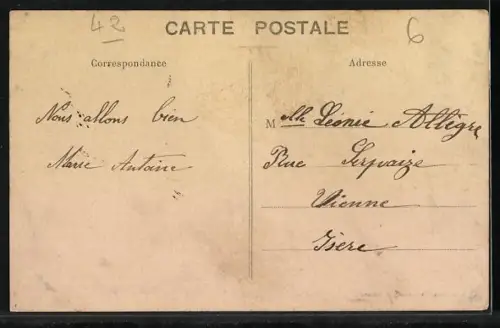 42
CARTE POSTALE
6
Correspondance
Adresse
Nous allons bien
Marie Antoine
Mlle Léonie Allègre
Rue Serpaize
Vienne
Isère